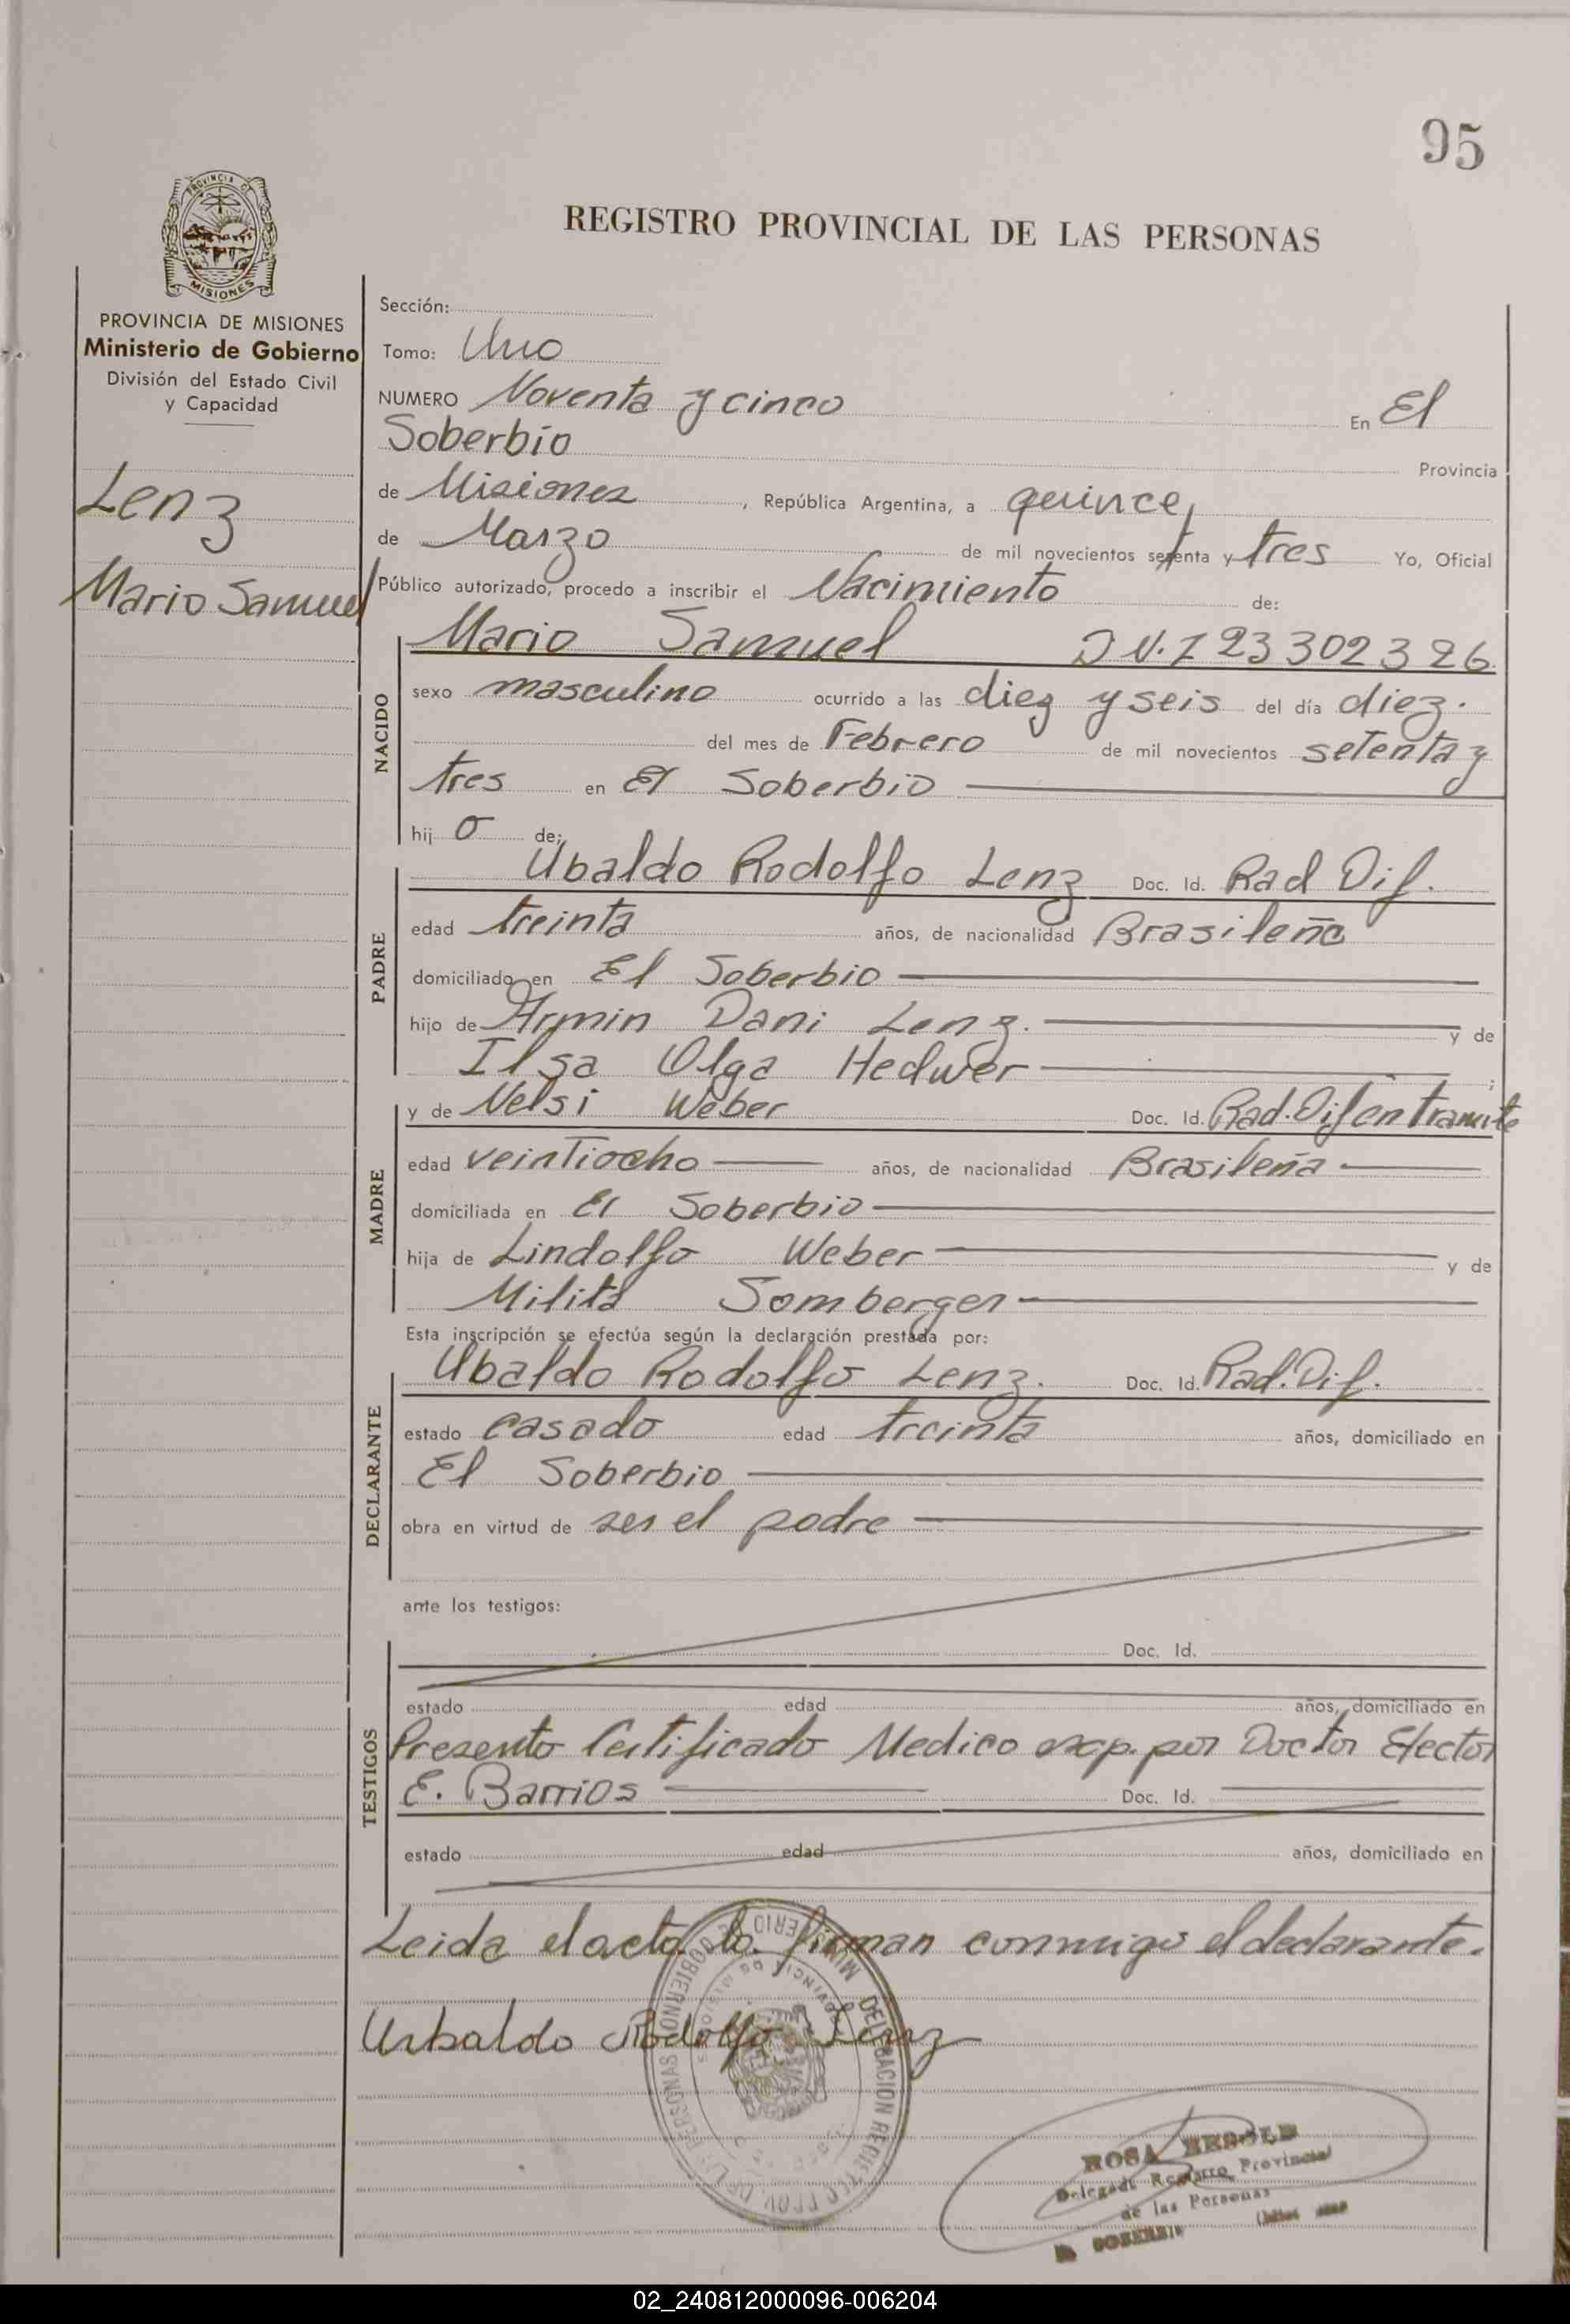 95
PROVINCIA DE
MISIONES
REGISTRO PROVINCIAL DE LAS PERSONAS
PROVINCIA DE MISIONES
Ministerio de Gobierno
División del Estado Civil
y Capacidad
Lenz
Mario Samuel
Sección:
Tomo: Uno
NUMERO Noventa y cinco En El
Soberbio Provincia
de Misiones, República Argentina, a quince
de Marzo de mil novecientos setenta y tres Yo, Oficial
Público autorizado, procedo a inscribir el Nacimiento de:
NACIDO
Mario Samuel 23302326
sexo masculino ocurrido a las diez y seis del día diez.
del mes de Febrero de mil novecientos setenta y
tres en El Soberbio
hij o de:
PADRE
Ubaldo Rodolfo Lenz Doc. Id. Rad Dif.
edad treinta años, de nacionalidad Brasileño
domiciliado en El Soberbio
hijo de Armin Dani Lenz. y de
Ilsa Olga Hedwer ;
MADRE
y de Nelsi Weber Doc. Id. Rad. Dif en tramite
edad veintiocho años, de nacionalidad Brasileña
domiciliada en El Soberbio
hija de Lindolfo Weber y de
Milita Somberger
Esta inscripción se efectúa según la declaración prestada por:
DECLARANTE
Ubaldo Rodolfo Lenz. Doc. Id. Rad. Dif.
estado casado edad treinta años, domiciliado en
El Soberbio
obra en virtud de ser el padre
ante los testigos:
TESTIGOS
Doc. Id.
estado edad años, domiciliado en
Presento Certificado Medico exp. por Doctor Efector
E. Barrios Doc. Id.
estado edad años, domiciliado en
Leida el acta la firman conmigo el declarante.
Urbaldo Rodolfo Lenz
MINISTERIO DE GOBIERNO
DELEGACION REGISTRO PROV. DE LAS PERSONAS
PROVINCIA DE MISIONES
ROSA
Delegada Registro Provincial
de las Personas
SOBERBIO
02_240812000096-006204